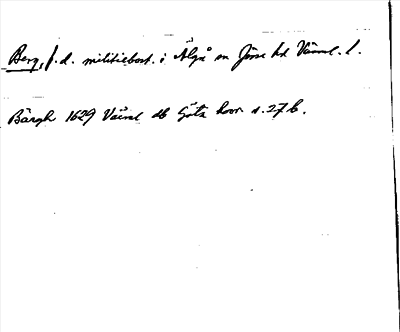 Berg, f.d. militiebost. i Älgå sn Jösse hd Värml. l.
Bärgh 1629 Värml db Göta hovr s. 27 b.